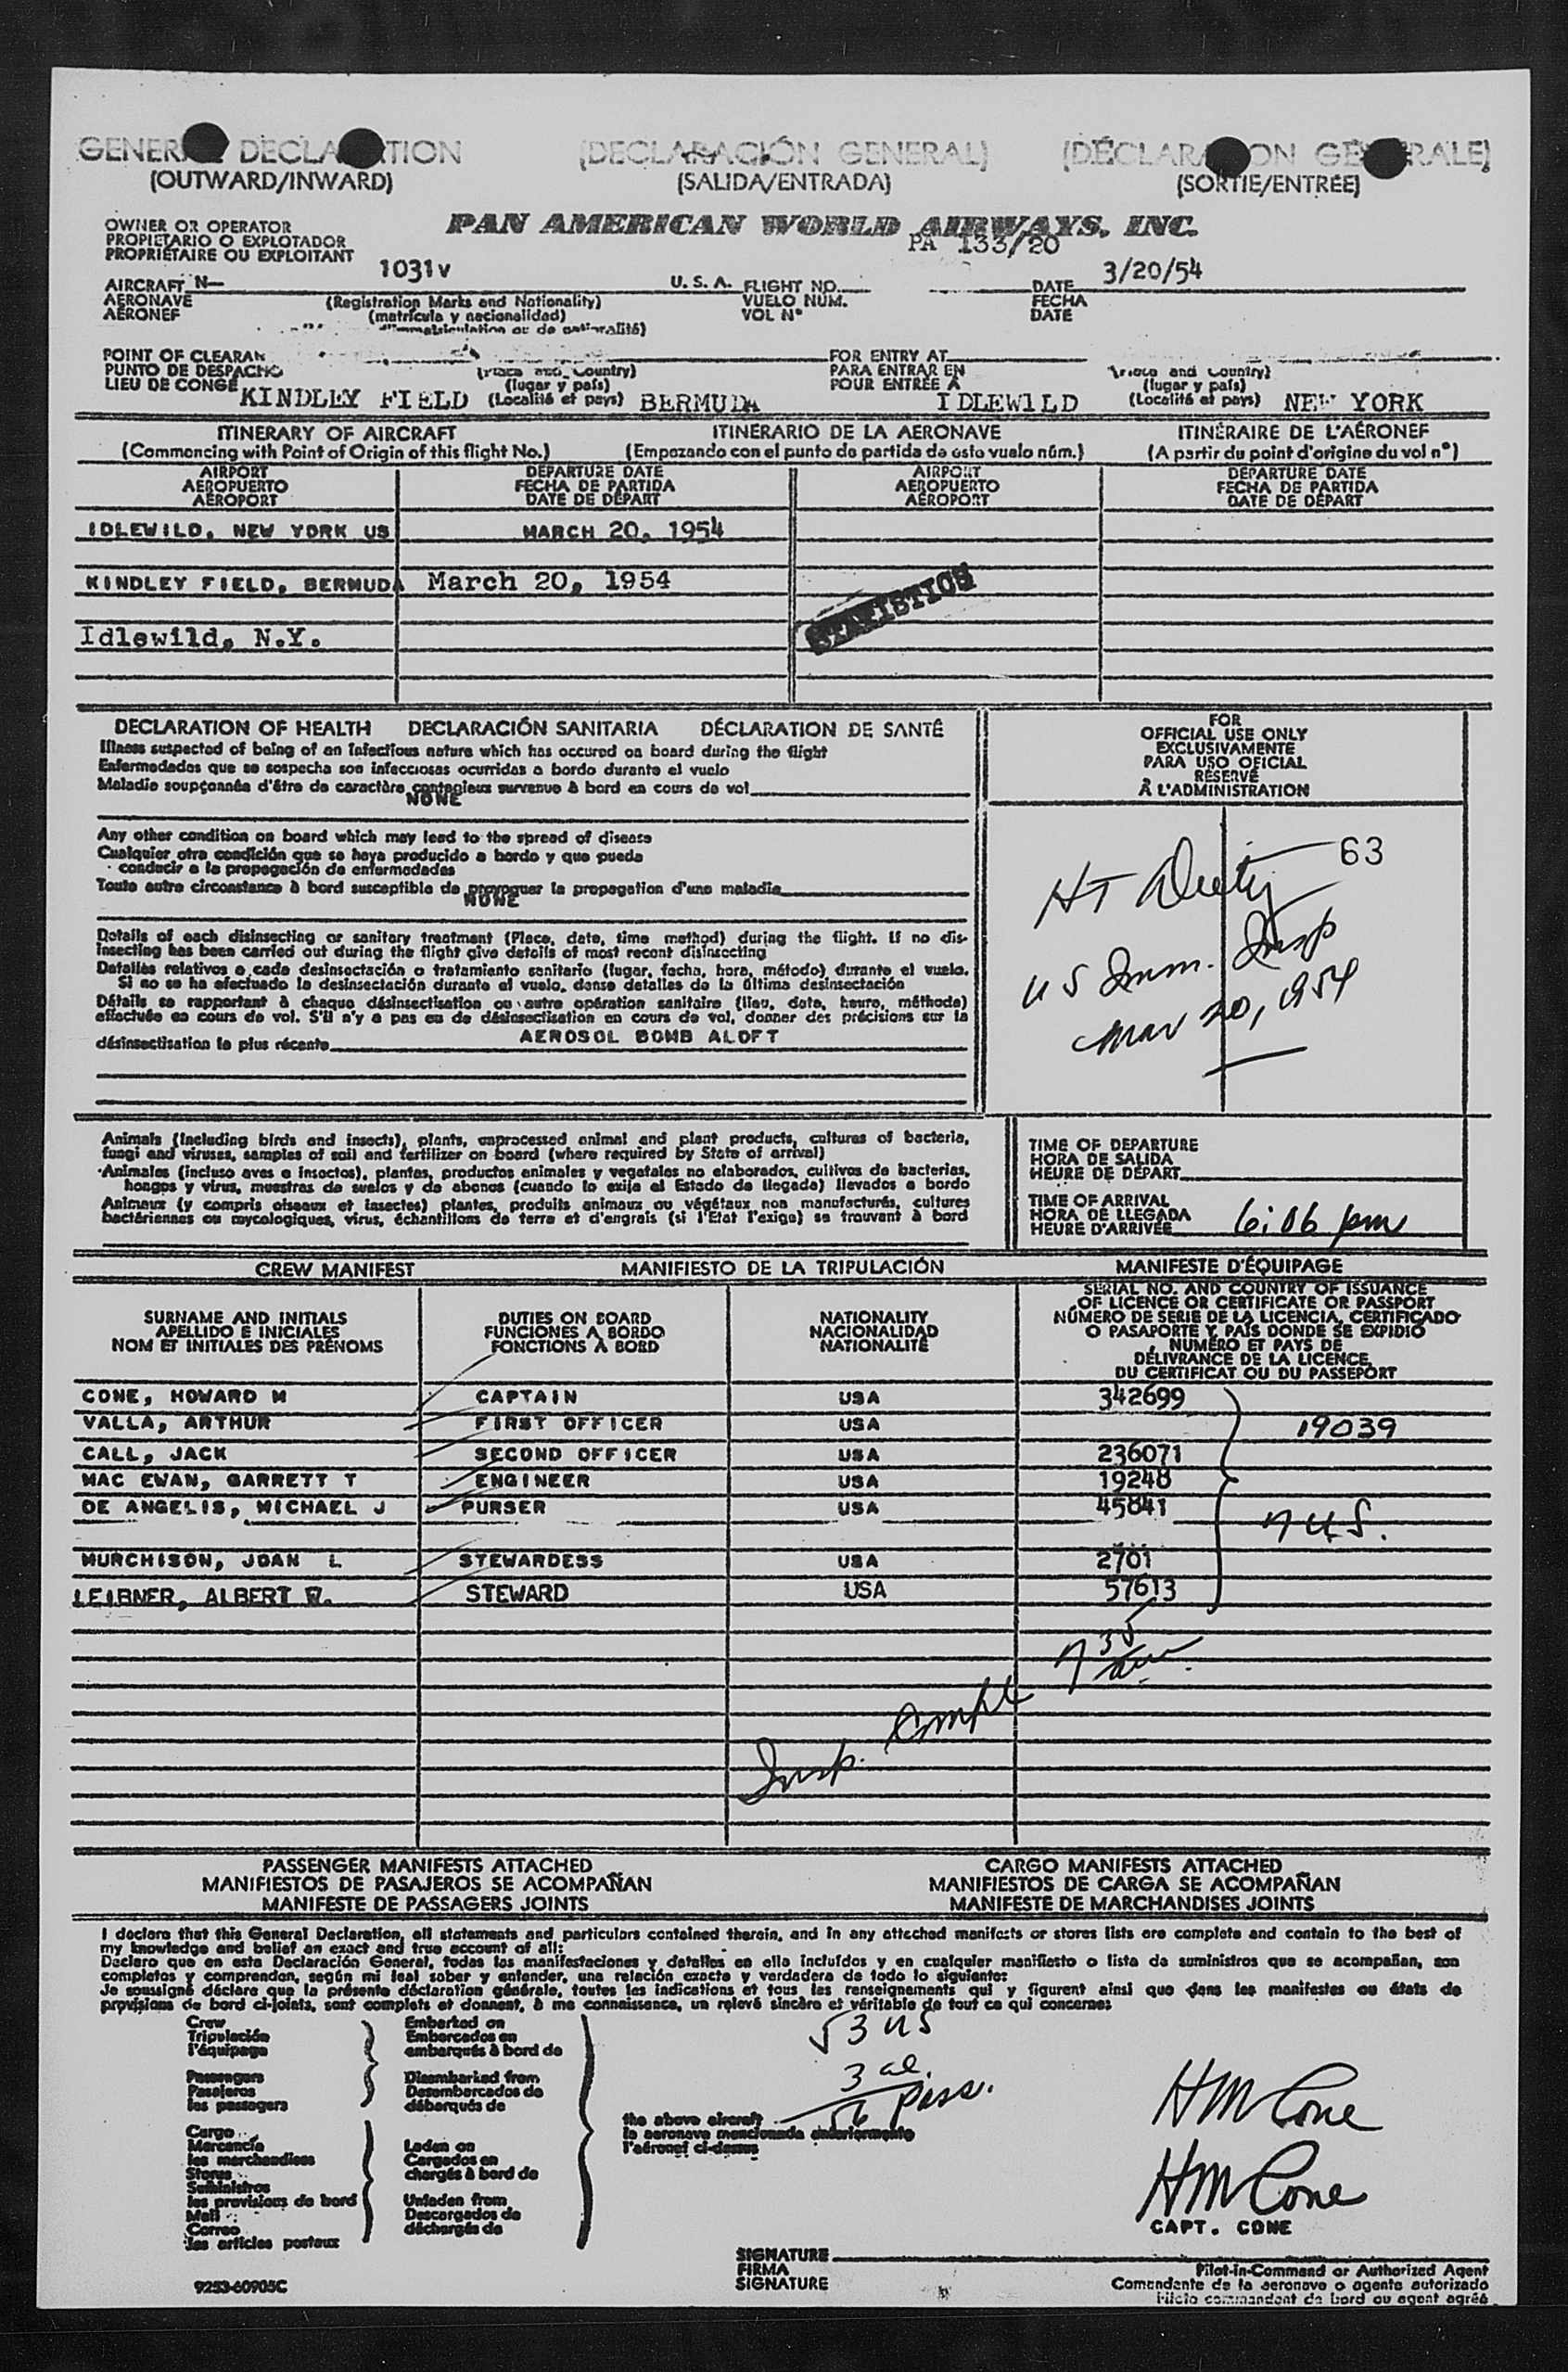 GENERAL DECLARATION (DECLARACIÓN GENERAL) (DÉCLARATION GÉNÉRALE)
(OUTWARD/INWARD) (SALIDA/ENTRADA) (SORTIE/ENTRÉE)
OWNER OR OPERATOR
PROPIETARIO O EXPLOTADOR
PROPRIÉTAIRE OU EXPLOITANT
PAN AMERICAN WORLD AIRWAYS, INC.
PA 133/20
1031V 3/20/54
AIRCRAFT N— U. S. A. FLIGHT NO. DATE
AERONAVE (Registration Marks and Nationality) VUELO NÚM. FECHA
AÉRONEF (matrícula y nacionalidad) VOL N° DATE
POINT OF CLEARAN FOR ENTRY AT
PUNTO DE DESPACHO (Place and Country) PARA ENTRAR EN (Place and Country)
LIEU DE CONGÉ (lugar y país) POUR ENTRÉE À (lugar y país)
KINDLEY FIELD (Localité et pays) BERMUDA IDLEWILD (Localité et pays) NEW YORK
ITINERARY OF AIRCRAFT ITINERARIO DE LA AERONAVE ITINÉRAIRE DE L'AÉRONEF
(Commencing with Point of Origin of this flight No.) (Empezando con el punto de partida de este vuelo núm.) (A partir du point d'origine du vol n°)
AIRPORT DEPARTURE DATE AIRPORT DEPARTURE DATE
AEROPUERTO FECHA DE PARTIDA AEROPUERTO FECHA DE PARTIDA
AÉROPORT DATE DE DÉPART AÉROPORT DATE DE DÉPART
IDLEWILD, NEW YORK US MARCH 20, 1954
KINDLEY FIELD, BERMUDA March 20, 1954
STATISTICS
Idlewild, N.Y.
DECLARATION OF HEALTH DECLARACIÓN SANITARIA DÉCLARATION DE SANTÉ
Illness suspected of being of an infectious nature which has occured on board during the flight
Enfermedades que se sospecha son infecciosas ocurridas a bordo durante el vuelo
Maladie soupçonnée d'être de caractère contagieux survenue à bord en cours de vol
NONE
Any other condition on board which may lead to the spread of disease
Cualquier otra condición que se haya producido a bordo y que pueda
conducir a la propagación de enfermedades
Toute autre circonstance à bord susceptible de provoquer la propagation d'une maladie
NONE
Details of each disinsecting or sanitary treatment (Place, date, time method) during the flight. If no dis-
insecting has been carried out during the flight give details of most recent disinsecting
Detalles relativos a cada desinsectación o tratamiento sanitario (lugar, fecha, hora, método) durante el vuelo.
Si no se ha efectuado la desinsectación durante el vuelo, dense detalles de la última desinsectación
Détails se rapportant à chaque désinsectisation ou autre opération sanitaire (lieu, date, heure, méthode)
effectuée en cours de vol. S'il n'y a pas eu de désinsectisation en cours de vol, donner des précisions sur la
désinsectisation la plus récente AEROSOL BOMB ALOFT
FOR
OFFICIAL USE ONLY
EXCLUSIVAMENTE
PARA USO OFICIAL
RÉSERVÉ
À L'ADMINISTRATION
63
US Imm. Insp
Mar 20, 1954
Animals (including birds and insects), plants, unprocessed animal and plant products, cultures of bacteria,
fungi and viruses, samples of soil and fertilizer on board (where required by State of arrival)
Animales (incluso aves e insectos), plantas, productos animales y vegetales no elaborados, cultivos de bacterias,
hongos y virus, muestras de suelos y de abonos (cuando lo exija el Estado de llegada) llevados a bordo
Animaux (y compris oiseaux et insectes) plantes, produits animaux ou végétaux non manufacturés, cultures
bactériennes ou mycologiques, virus, échantillons de terre et d'engrais (si l'État l'exige) se trouvant à bord
TIME OF DEPARTURE
HORA DE SALIDA
HEURE DE DÉPART
TIME OF ARRIVAL
HORA DE LLEGADA
HEURE D'ARRIVÉE 6:06 pm
CREW MANIFEST MANIFIESTO DE LA TRIPULACIÓN MANIFESTE D'ÉQUIPAGE
SURNAME AND INITIALS
APELLIDO E INICIALES
NOM ET INITIALES DES PRÉNOMS
DUTIES ON BOARD
FUNCIONES A BORDO
FONCTIONS À BORD
NATIONALITY
NACIONALIDAD
NATIONALITÉ
SERIAL NO. AND COUNTRY OF ISSUANCE
OF LICENCE OR CERTIFICATE OR PASSPORT
NÚMERO DE SERIE DE LA LICENCIA, CERTIFICADO
O PASAPORTE Y PAÍS DONDE SE EXPIDIÓ
NUMÉRO ET PAYS DE
DÉLIVRANCE DE LA LICENCE,
DU CERTIFICAT OU DU PASSEPORT
CONE, HOWARD M CAPTAIN USA 342699
VALLA, ARTHUR FIRST OFFICER USA 19039
CALL, JACK SECOND OFFICER USA 236071
MAC EWAN, GARRETT T ENGINEER USA 19248
DE ANGELIS, MICHAEL J PURSER USA 45841
7 US.
MURCHISON, JOAN L STEWARDESS USA 2701
LEIBNER, ALBERT W. STEWARD USA 57613
Insp. Compl 7 35
PASSENGER MANIFESTS ATTACHED CARGO MANIFESTS ATTACHED
MANIFIESTOS DE PASAJEROS SE ACOMPAÑAN MANIFIESTOS DE CARGA SE ACOMPAÑAN
MANIFESTE DE PASSAGERS JOINTS MANIFESTE DE MARCHANDISES JOINTS
I declare that this General Declaration, all statements and particulars contained therein, and in any attached manifests or stores lists are complete and contain to the best of
my knowledge and belief an exact and true account of all:
Declaro que en esta Declaración General, todas las manifestaciones y detalles en ella incluídos y en cualquier manifiesto o lista de suministros que se acompañan, son
completos y comprenden, según mi leal saber y entender, una relación exacta y verdadera de todo lo siguiente:
Je soussigné déclare que la présente déclaration générale, toutes les indications et tous les renseignements qui y figurent ainsi que dans les manifestes ou états de
provisions de bord ci-joints, sont complets et donnent, à ma connaissance, un relevé sincère et véritable de tout ce qui concerne:
Crew Embarked on
Tripulación Embarcados en
l'équipage embarqués à bord de
Passengers Disembarked from
Pasajeros Desembarcados de
les passagers débarqués de
53 US
3 al.
56 Pass.
the above aircraft
la aeronave mencionada anteriormente
l'aéronef ci-dessus
Cargo
Mercancía Laden on
les marchandises Cargados en
Stores chargés à bord de
Suministros
les provisions de bord Unladen from
Mail Descargados de
Correo déchargés de
les articles postaux
HM Cone
HM Cone
CAPT. CONE
SIGNATURE
FIRMA
SIGNATURE
Pilot-in-Command or Authorized Agent
Comandante de la aeronave o agente autorizado
Pilote commandant de bord ou agent agréé
9253-60905C